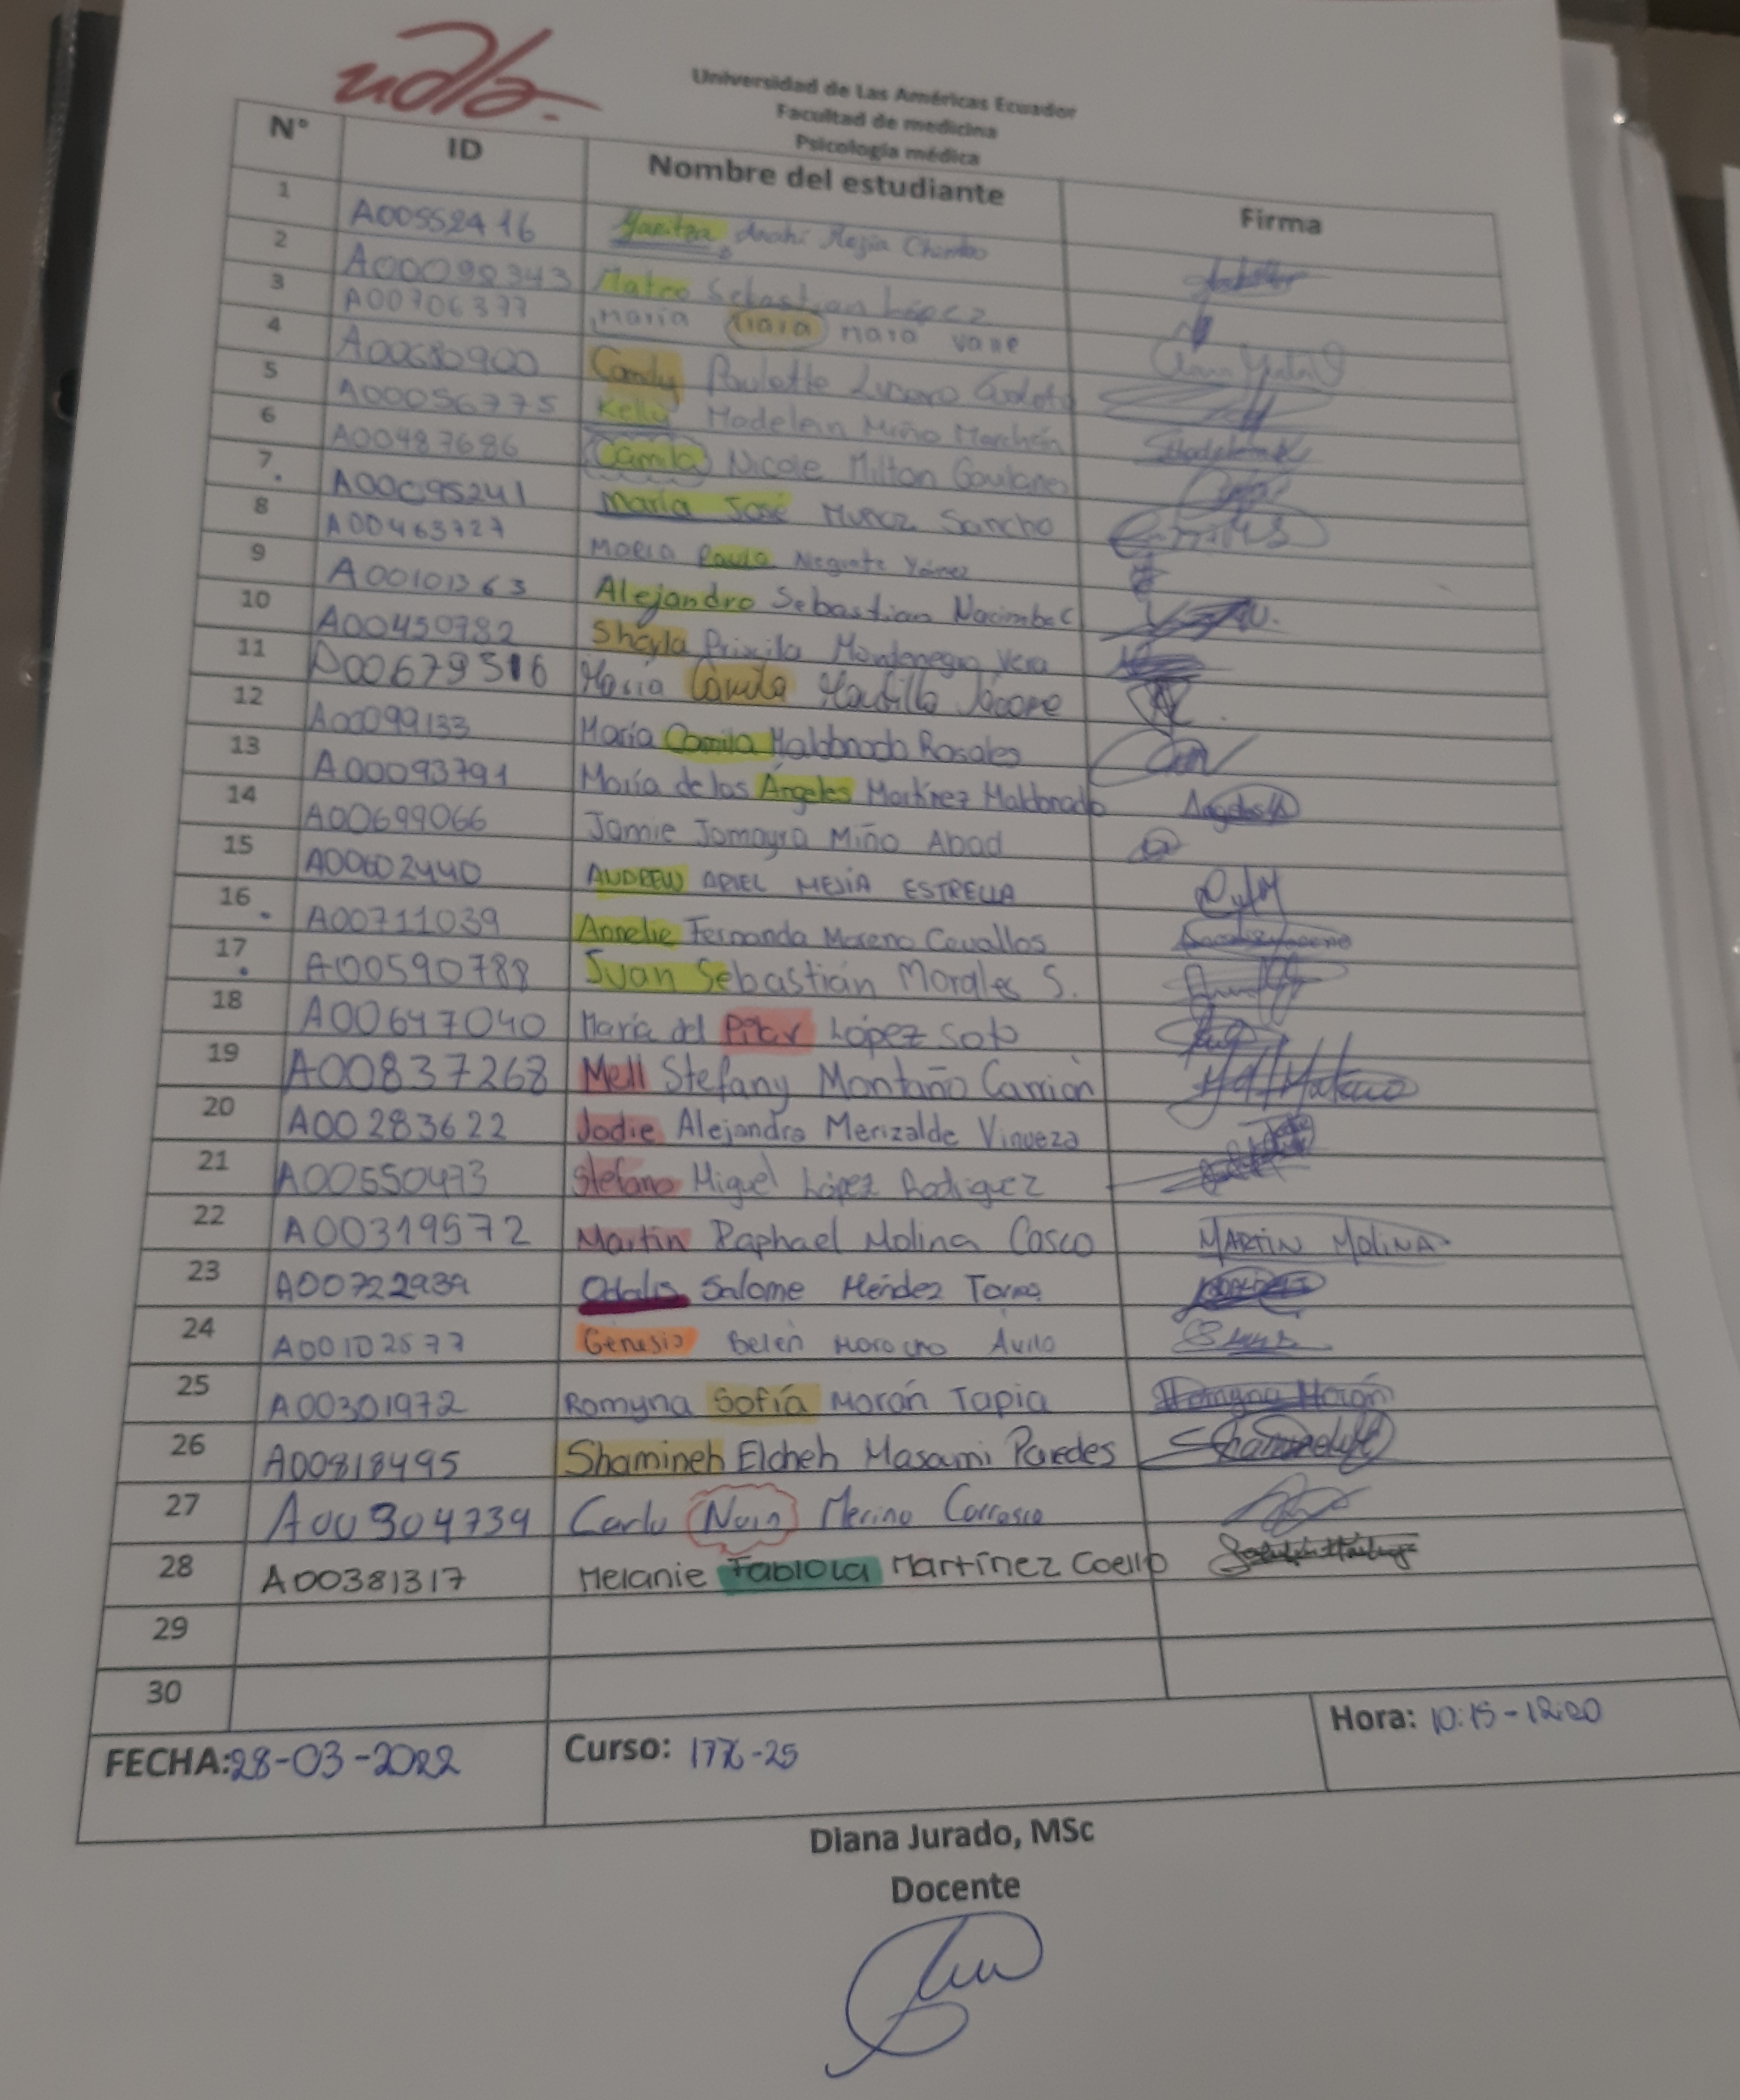 udla-
Universidad de Las Américas Ecuador
Facultad de medicina
Psicología médica
N° ID Nombre del estudiante Firma
1 A00552416 Yaritza Anahí Mejía Chimbo
2 A00098343 Mateo Sebastian López
3 A00706377 maría mara
4 A00680900 Candy Paulette Lucero
5 A00056775 Kelly Madelein Miño Marchán
6 A00487686 Camila Nicole Milton
7 A00095241 María José Muñoz Sancho
8 A00463727 María Paula Negrete Yánez
9 A00101363 Alejandro Sebastian
10 A00450782 Sheyla Priscila Montenegro Vera
11 A00679516 María Camila Madilla Jácome
12 A00099133 María Camila Maldonado Rosales
13 A00093791 María de los Ángeles Martínez Maldonado
14 A00699066 Jamie Jomayra Miño Abad
15 A00602440 ANDREW ARIEL MEJÍA ESTRELLA
16 A00711039 Annelie Fernanda Moreno Cevallos
17 A00590788 Juan Sebastián Morales S.
18 A00647040 María del Pilar López Soto
19 A00837268 Mell Stefany Montaño Carrión
20 A00283622 Jodie Alejandra Merizalde Vinueza
21 A00550473 Stefano Miguel López Rodriguez
22 A00319572 Martin Raphael Molina Casco MARTIN MOLINA
23 A00722939 Odalis Salome Méndez Torres
24 A00102577 Génesis Belén Morocho Ávila
25 A00301972 Romyna Sofía Morán Tapia Romyna Morán
26 A00818495 Shamineh Elcheh Masami Paredes
27 A00304739 Carlo Merino Carrasco
28 A00381317 Melanie Fabiola Martínez Coello
29
30
FECHA: 28-03-2022 Curso: 176-25 Hora: 10:15-12:20
Diana Jurado, MSc
Docente